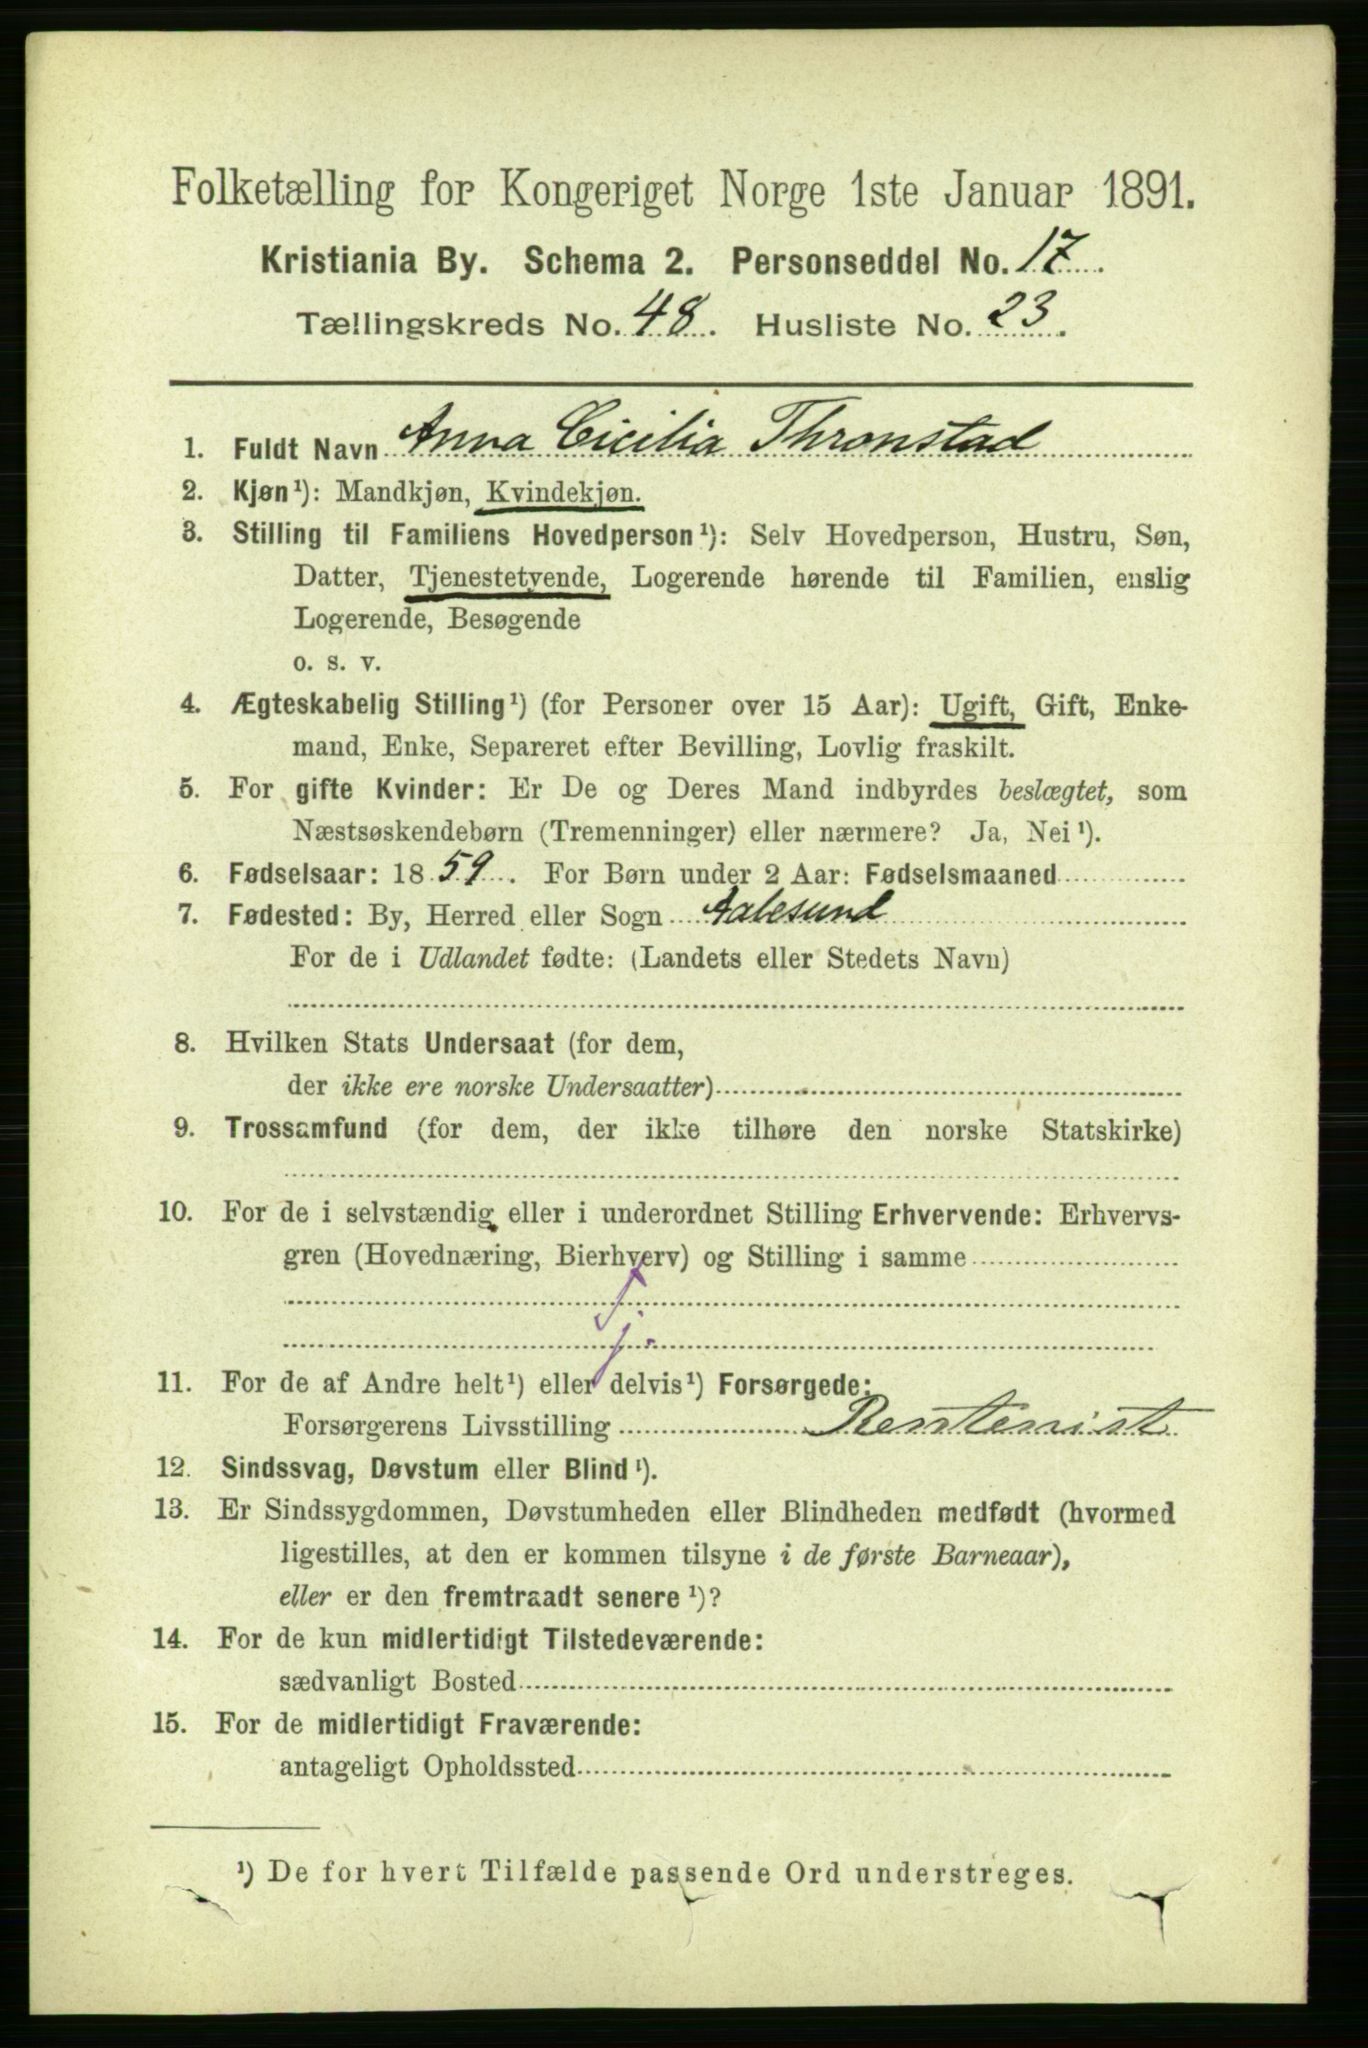 Folketælling for Kongeriget Norge 1ste Januar 1891.
Kristiania By. Schema 2. Personseddel No. 17.
Tællingskreds No. 48. Husliste No. 23.
1. Fuldt Navn Anna Cicilia Thronstad
2. Kjøn¹): Mandkjøn, Kvindekjøn.
3. Stilling til Familiens Hovedperson¹): Selv Hovedperson, Hustru, Søn,
Datter, Tjenestetyende, Logerende hørende til Familien, enslig
Logerende, Besøgende
o. s. v.
4. Ægteskabelig Stilling¹) (for Personer over 15 Aar): Ugift, Gift, Enke-
mand, Enke, Separeret efter Bevilling, Lovlig fraskilt.
5. For gifte Kvinder: Er De og Deres Mand indbyrdes beslægtet, som
Næstsøskendebørn (Tremenninger) eller nærmere? Ja, Nei¹).
6. Fødselsaar: 1859. For Børn under 2 Aar: Fødselsmaaned
7. Fødested: By, Herred eller Sogn Aalesund
For de i Udlandet fødte: (Landets eller Stedets Navn)
8. Hvilken Stats Undersaat (for dem,
der ikke ere norske Undersaatter)
9. Trossamfund (for dem, der ikke tilhøre den norske Statskirke)
10. For de i selvstændig eller i underordnet Stilling Erhvervende: Erhvervs-
gren (Hovednæring, Bierhverv) og Stilling i samme
11. For de af Andre helt¹) eller delvis¹) Forsørgede:
Forsørgerens Livsstilling Rentenist
12. Sindssvag, Døvstum eller Blind¹).
13. Er Sindssygdommen, Døvstumheden eller Blindheden medfødt (hvormed
ligestilles, at den er kommen tilsyne i de første Barneaar),
eller er den fremtraadt senere¹)?
14. For de kun midlertidigt Tilstedeværende:
sædvanligt Bosted
15. For de midlertidigt Fraværende:
antageligt Opholdssted
¹) De for hvert Tilfælde passende Ord understreges.